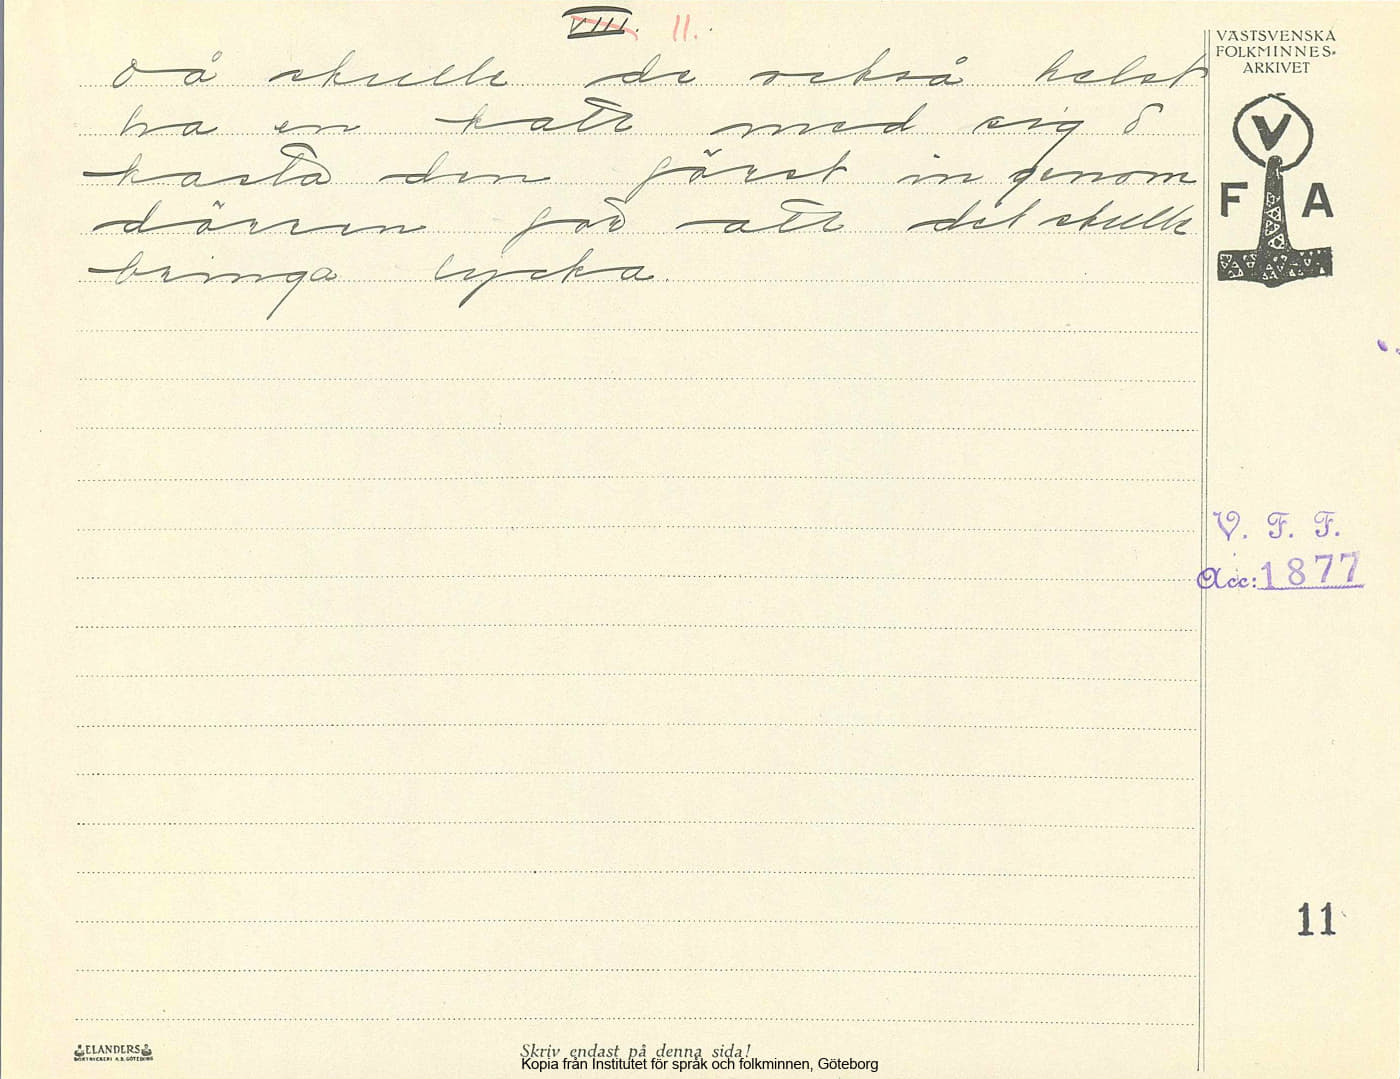 VIII. 11.
VÄSTSVENSKA
FOLKMINNES-
ARKIVET
då skulle de också helst
ha en katt med sig o
kasta den först in genom
dörren för att det skulle
bringa lycka.
V
F A
V. F. F.
Acc: 1877
11
ELANDERS
BOKTRYCKERI A.B. GÖTEBORG
Skriv endast på denna sida!
Kopia från Institutet för språk och folkminnen, Göteborg